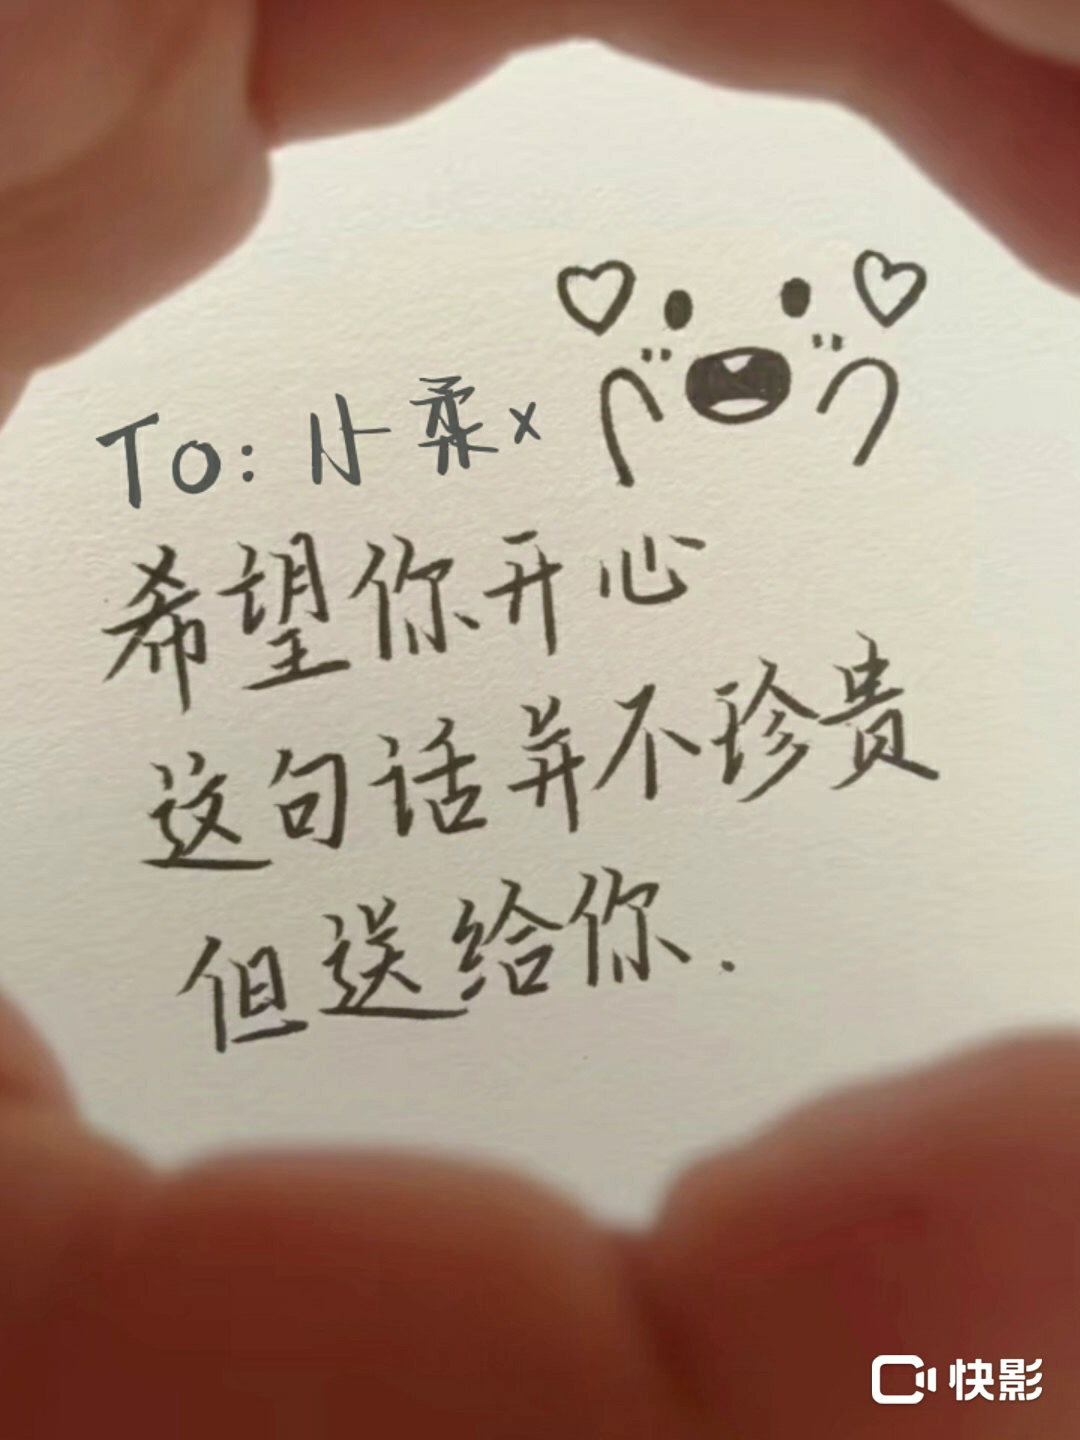 To: 小柔x
希望你开心
这句话并不珍贵
但送给你.
快影